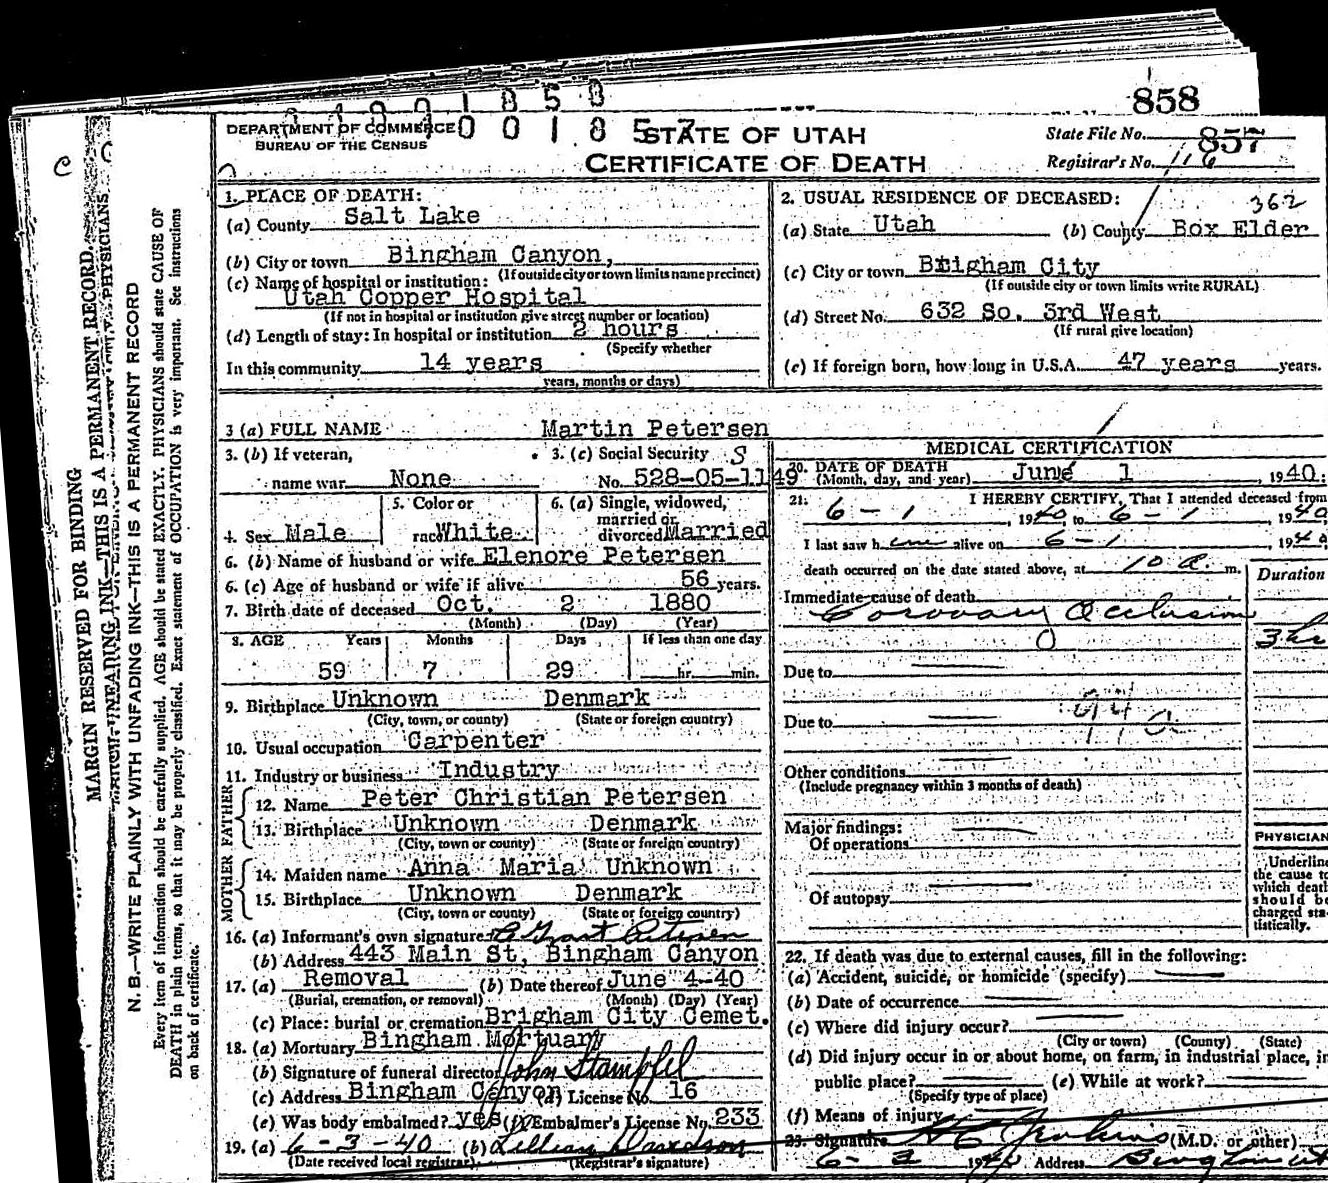 858
DEPARTMENT OF COMMERCE
BUREAU OF THE CENSUS
STATE OF UTAH
CERTIFICATE OF DEATH
State File No. 857
Registrar's No. 116
C
MARGIN RESERVED FOR BINDING
N. B.—WRITE PLAINLY WITH UNFADING INK—THIS IS A PERMANENT RECORD
Every item of information should be carefully supplied. AGE should be stated EXACTLY. PHYSICIANS should state CAUSE OF
DEATH in plain terms, so that it may be properly classified. Exact statement of OCCUPATION is very important. See instructions
on back of certificate.
1. PLACE OF DEATH:
(a) County Salt Lake
(b) City or town Bingham Canyon,
(If outside city or town limits name precinct)
(c) Name of hospital or institution:
Utah Copper Hospital
(If not in hospital or institution give street number or location)
(d) Length of stay: In hospital or institution 2 hours
(Specify whether
In this community 14 years
years, months or days)
2. USUAL RESIDENCE OF DECEASED: 362
(a) State Utah (b) County Box Elder
(c) City or town Brigham City
(If outside city or town limits write RURAL)
(d) Street No. 632 So. 3rd West
(If rural give location)
(e) If foreign born, how long in U.S.A. 47 years years.
3 (a) FULL NAME Martin Petersen
3. (b) If veteran,
name war None
3. (c) Social Security S
No. 528-05-1149
4. Sex Male
5. Color or
race White
6. (a) Single, widowed,
married or
divorced Married
6. (b) Name of husband or wife Elenore Petersen
6. (c) Age of husband or wife if alive 56 years.
7. Birth date of deceased Oct. 2 1880
(Month) (Day) (Year)
8. AGE Years Months Days If less than one day
59 7 29 hr. min.
9. Birthplace Unknown Denmark
(City, town, or county) (State or foreign country)
10. Usual occupation Carpenter
11. Industry or business Industry
FATHER
12. Name Peter Christian Petersen
13. Birthplace Unknown Denmark
(City, town or county) (State or foreign country)
MOTHER
14. Maiden name Anna Maria Unknown
15. Birthplace Unknown Denmark
(City, town or county) (State or foreign country)
16. (a) Informant's own signature Grant Petersen
(b) Address 443 Main St, Bingham Canyon
17. (a) Removal (b) Date thereof June 4-40
(Burial, cremation, or removal) (Month) (Day) (Year)
(c) Place: burial or cremation Brigham City Cemet.
18. (a) Mortuary Bingham Mortuary
(b) Signature of funeral director John Stampfel
(c) Address Bingham Canyon (d) License No. 16
(e) Was body embalmed? yes (f) Embalmer's License No. 233
19. (a) 6-3-40 (b) Lillian Davidson
(Date received local registrar) (Registrar's signature)
MEDICAL CERTIFICATION
20. DATE OF DEATH
(Month, day, and year) June 1, 1940:
21. I HEREBY CERTIFY, That I attended deceased from
6-1, 1940, to 6-1, 1940
I last saw him alive on 6-1, 1940
death occurred on the date stated above, at 10 a. m.
Duration
Immediate cause of death
Coronary Occlusion
3 hr
Due to
94
Due to
Other conditions
(Include pregnancy within 3 months of death)
Major findings:
Of operations
Of autopsy
PHYSICIAN
Underline
the cause to
which death
should be
charged sta-
tistically.
22. If death was due to external causes, fill in the following:
(a) Accident, suicide, or homicide (specify)
(b) Date of occurrence
(c) Where did injury occur?
(City or town) (County) (State)
(d) Did injury occur in or about home, on farm, in industrial place, in
public place? (e) While at work?
(Specify type of place)
(f) Means of injury
23. Signature (M.D. or other)
6-3 1940 Address Bingham Ut